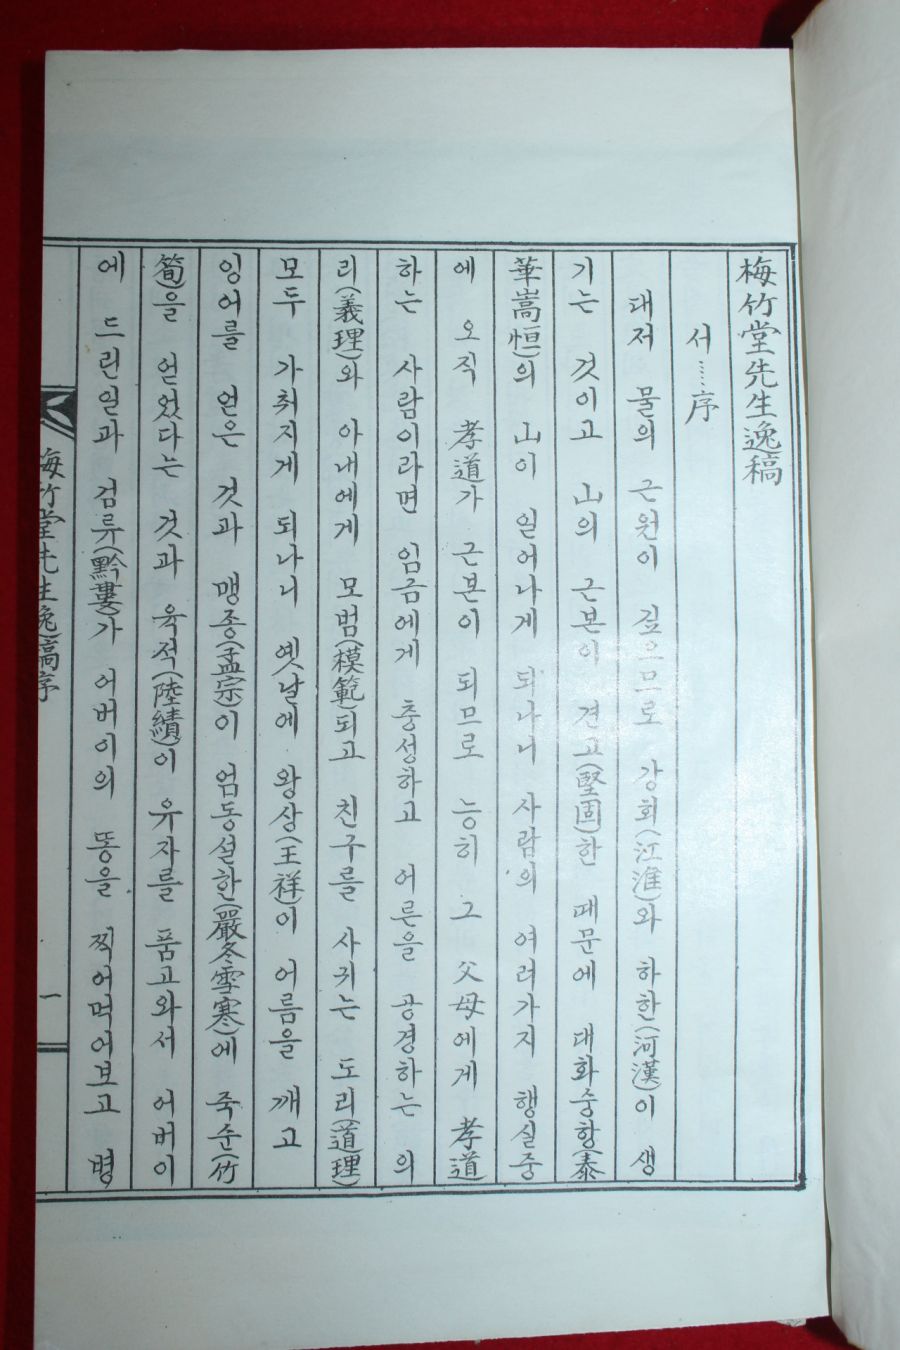 梅竹堂先生逸稿
서……序
대저 물의 근원이 깊으므로 강회(江淮)와 하한(河漢)이 생
기는 것이고 山의 근본이 견고(堅固)한 때문에 대화숭항(泰
華嵩恒)의 山이 일어나게 되나니 사람의 여러가지 행실중
에 오직 孝道가 근본이 되므로 능히 그 父母에게 孝道
하는 사람이라면 임금에게 충성하고 어른을 공경하는 의
리(義理)와 아내에게 모범(模範)되고 친구를 사귀는 도리(道理)
모두 가취지게 되나니 옛날에 왕상(王祥)이 어름을 깨고
잉어를 얻은 것과 맹종(孟宗)이 엄동설한(嚴冬雪寒)에 죽순(竹
筍)을 얻었다는 것과 육적(陸績)이 유자를 품고와서 어버이
에 드린일과 검루(黔婁)가 어버이의 똥을 찍어먹어보고 병
梅竹堂先生逸稿序
一